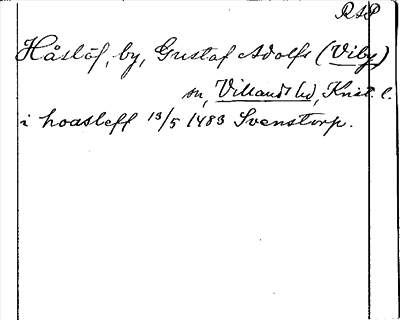 RSP
Håslöf, by, Gustaf Adolfs (Viby)
sn, Villands hd, Krist. l.
i hoasleff 13/5 1483 Svenstorp.